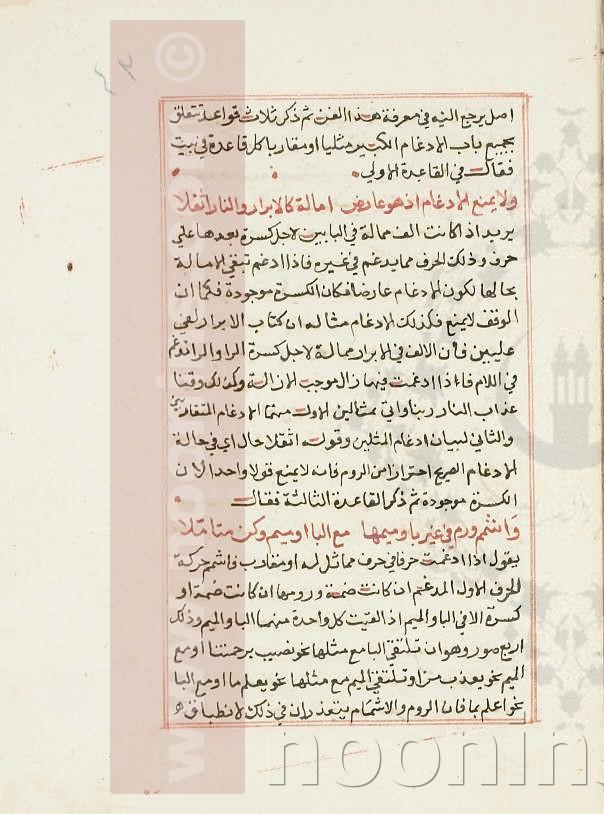 اصل يرجع اليه في معرفة هذا الفن ثم ذكر ثلاث قواعد تتعلق
بجميع باب الادغام الكبير مثليا او مقاربا كل قاعدة في بيت
فقال في القاعدة الاولي
ولا يمنع الادغام اذ هو عارض امالة كالابرار والنار اثقلا
يريد اذا كانت الف ممالة في البابين لاجل كسرة بعدها علي
حرف وذلك الحرف مما يدغم في غيره فاذا ادغم تبقي الامالة
بحالها لكون الادغام عارضا فكان الكسرة موجودة فكما ان
الوقف لا يمنع فكذلك الادغام مثاله ان كتاب الابرار لفي
عليين فان الالف في الابرار ممالة لاجل كسرة الرا والرا تدغم
في اللام فاذا ادغمت فيها زال الموجب للازالة وكذلك وقنا
عذاب النار ربنا واتي بمثالين الاول منهما الادغام المتقاربين
والثاني لبيان ادغام المثلين وقوله اثقلا حال اي في حالة
الادغام الصريح احترازا من الروم فانه لا يمنع قولا واحدا لان
الكسرة موجودة ثم ذكر القاعدة الثالثة فقال
واشمم ورم في غير با وميمها مع البا او ميم وكن متاملا
يقول اذا ادغمت حرفا في حرف مماثل له او مقارب فاشم حركة
الحرف الاول المدغم ان كانت ضمة ورومها ان كانت ضمة او
كسرة الا في البا والميم اذا لقيت كل واحدة منهما البا والميم وذلك
اربع صور وهو ان تلتقي البا مع مثلها نحو نصيب برحمتنا او مع
الميم نحو يعذب من او تلتقي الميم مع مثلها نحو يعلم ما او مع البا
نحو اعلم بما فان الروم والاشمام يتعذران في ذلك لانطباق
noonin